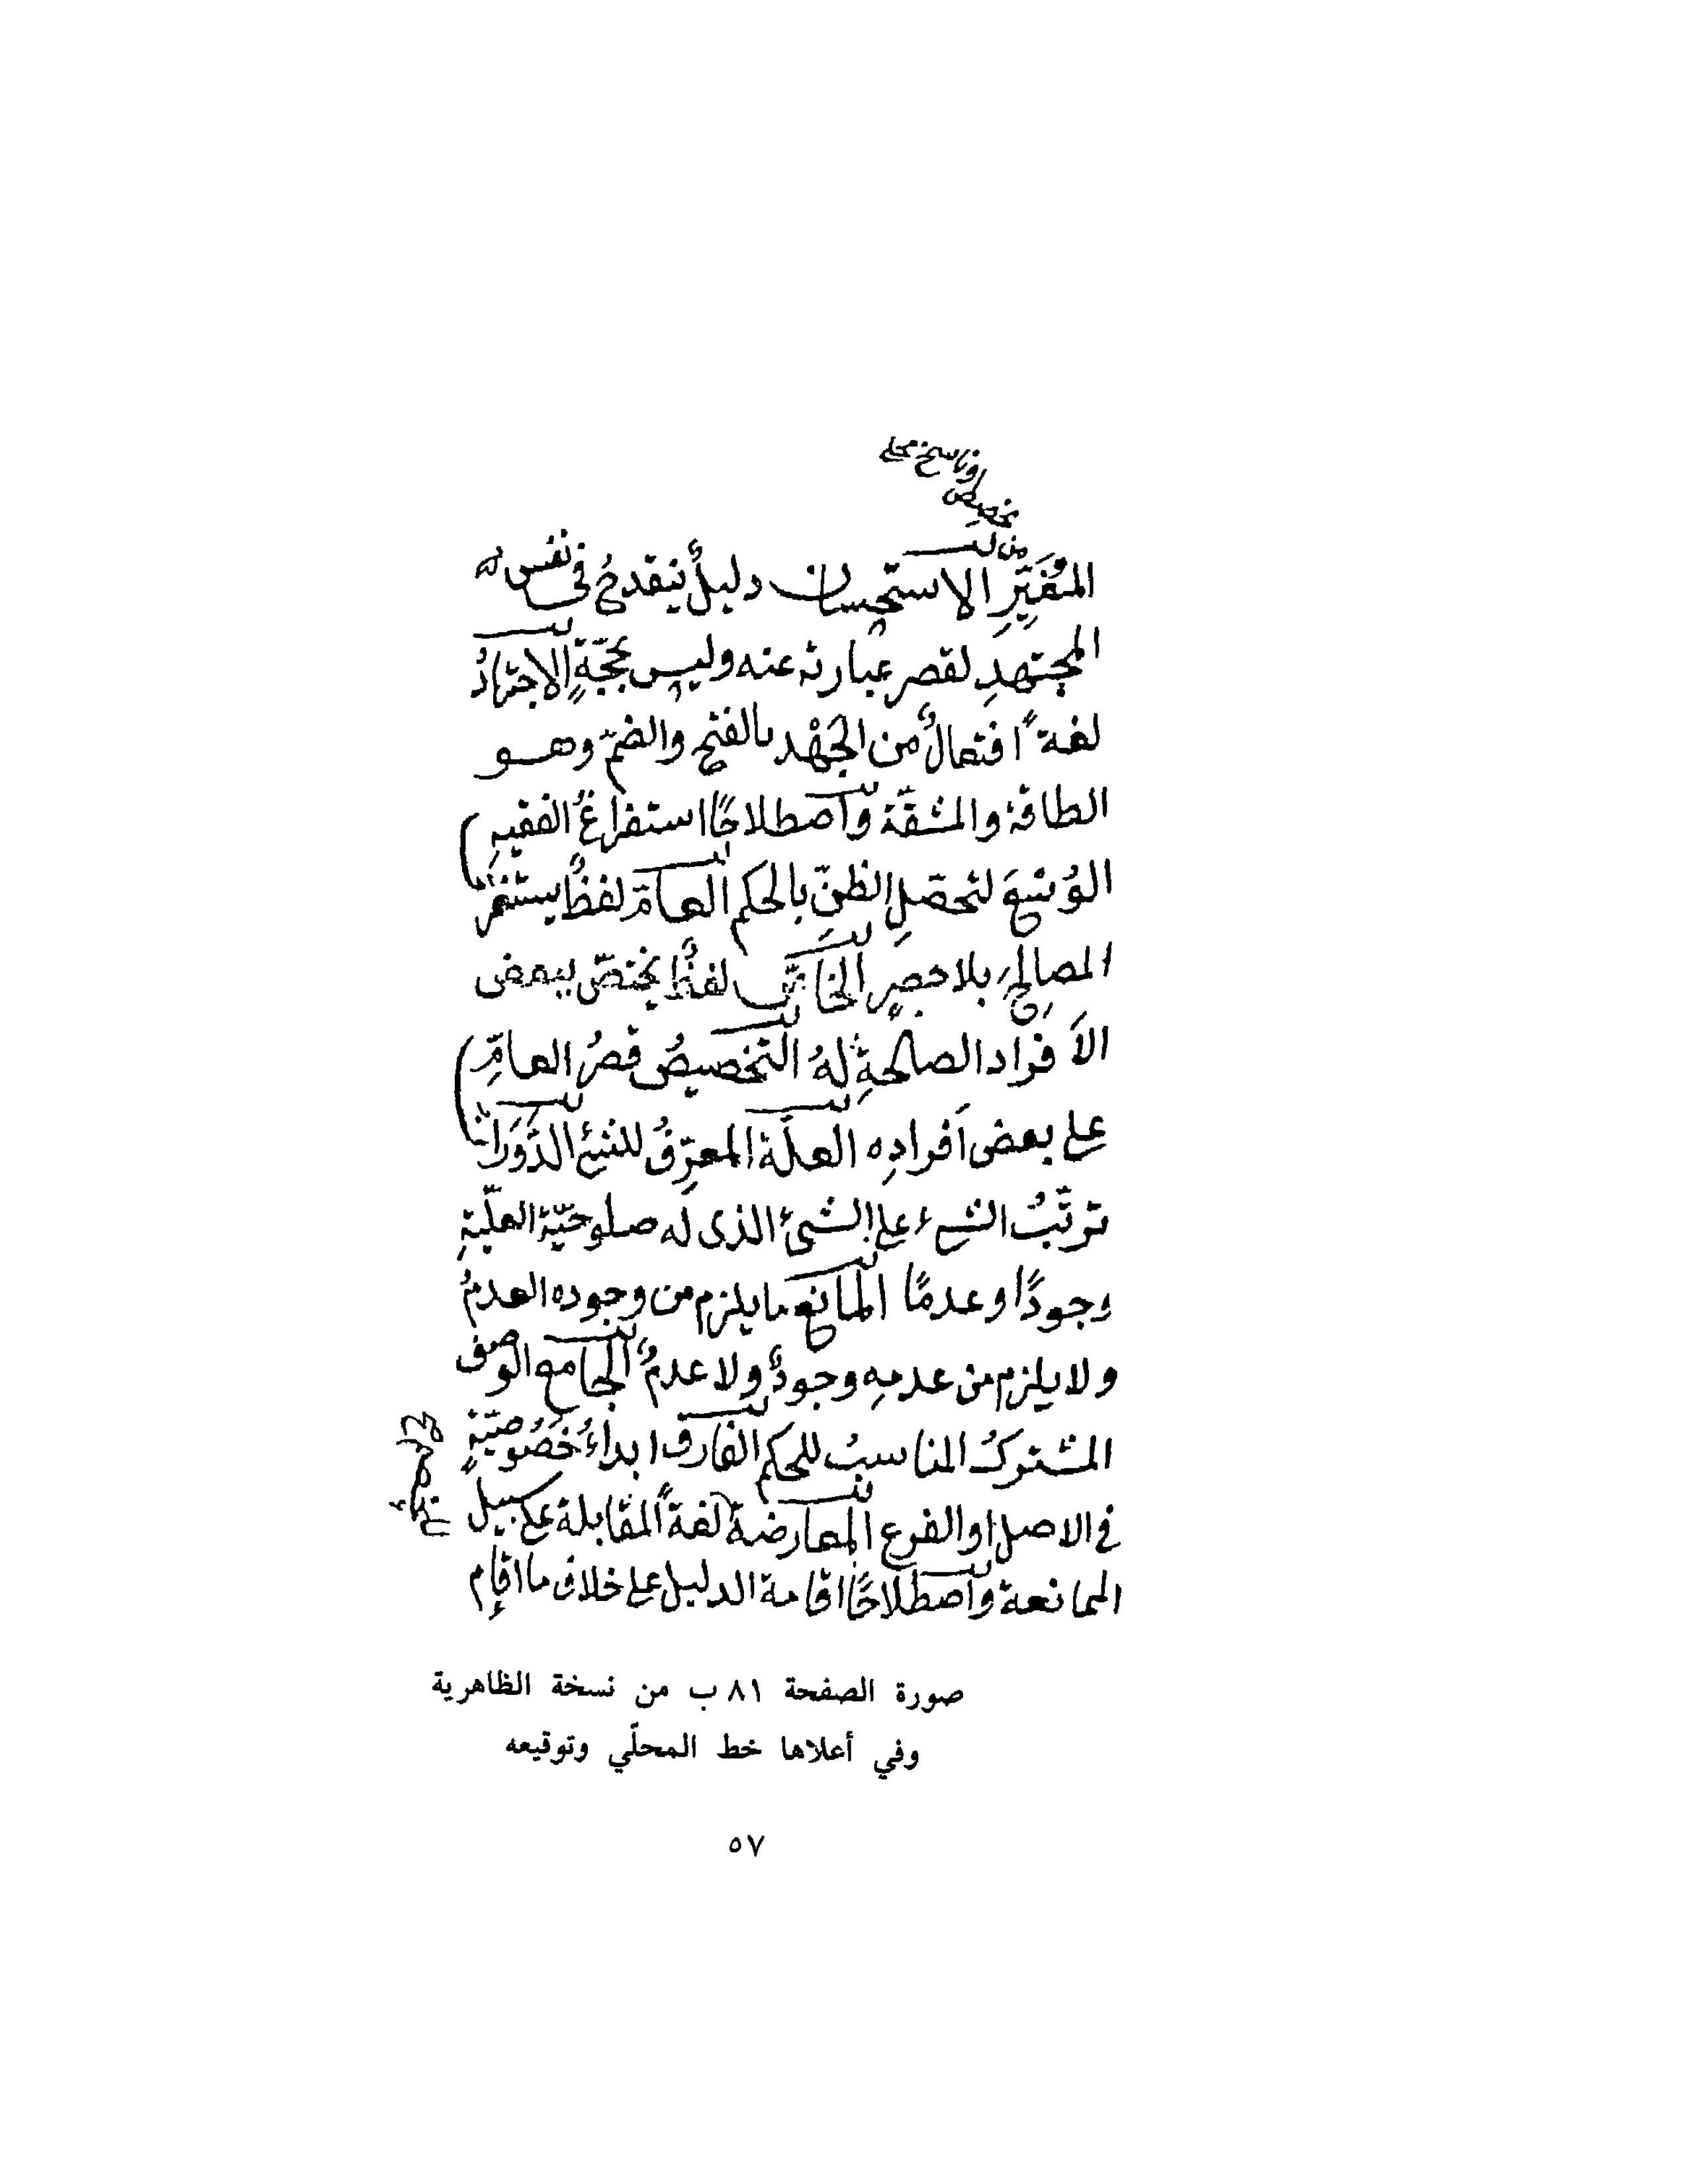 من
تخصيص
او ناسخ محلي
المُغَيِّرِ الاستحسان دليلٌ ينقدحُ في نفس
المجتهدِ لقصر عبارته عنه وليس بحجّةٍ الاجتهادُ
لغةً افتعالٌ من الجَهْد بالفتح والضمّ وهو
الطاقة والمشقّة واصطلاحًا استفراغُ الفقيهِ
الوُسْعَ لتحصيلِ الظنِّ بالحكم العامّ لفظٌ يستغرقُ
الصالحَ بلا حصرٍ الخاصّ لفظٌ يختصّ ببعض
الأفراد الصالحةِ لهُ التخصيصُ قصرُ العامِّ
على بعض أفرادِه العلّة المعرِّفُ للشئ الدَّوَرانُ
ترتّبُ الشيء على الشئ الذى له صلوحيّة العلّيةِ
وجودًا وعدمًا المانع ما يلزم من وجوده العدمُ
ولا يلزم من عدمِه وجودٌ ولا عدمٌ الجامع الوصف
المشتركُ المناسبُ للحكم الفارق ابداءُ خُصُوصيّةٍ
في الاصل او الفرع المعارضة لغةً المقابلة على سبيل
الممانعة واصطلاحًا اقامة الدليل على خلاف ما اقام
صورة الصفحة ٨١ ب من نسخة الظاهرية
وفي أعلاها خط المحلّي وتوقيعه
٥٧